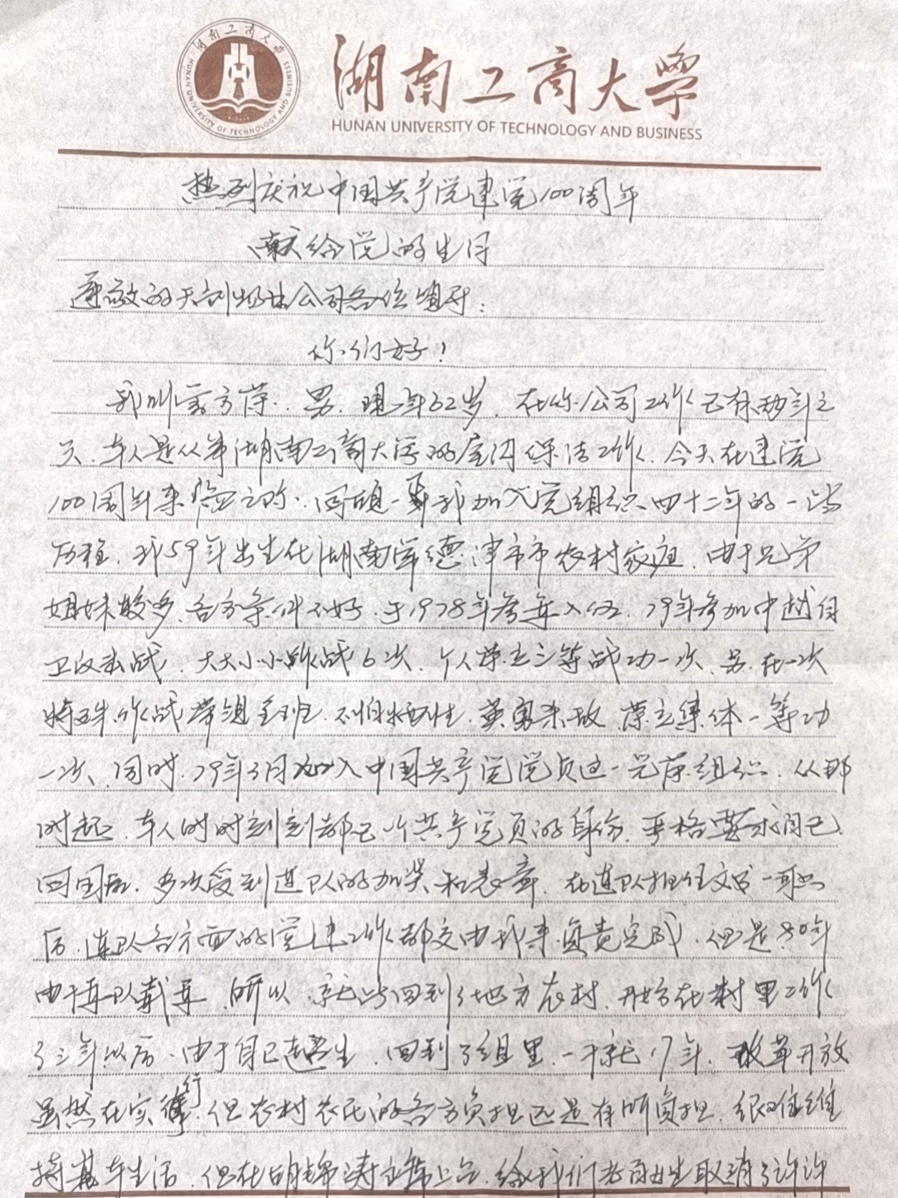 湖南工商大学
HUNAN UNIVERSITY OF TECHNOLOGY AND BUSINESS
湖南工商大学
HUNAN UNIVERSITY OF TECHNOLOGY AND BUSINESS
热烈庆祝中国共产党建党100周年
献给党的生日
尊敬的天创物业公司各位领导:
你们好!
我叫方萍、男、现年62岁,在你公司工作已有
天、本人是从事湖南工商大学的房间保洁工作、今天在建党
100周年来临之际、回顾一下我加入党组织四十二年的一些
历程,我59年出生在湖南常德津市市农村家庭,由于兄弟
姐妹较多,各方条件不好,于1978年参军入伍,79年参加中越自
卫反击战,大大小小作战6次,个人荣立三等战功一次、另、在一次
特殊作战带领全班、不怕牺牲、英勇杀敌、荣立集体一等功
一次、同时、79年3月加入中国共产党党员这一光荣组织、从那
时起、本人时时刻刻都已一个共产党员的身份、严格要求自己、
回国后,多次受到连队的加奖和表彰、在连队担任文书一职
后、连队各方面的党建工作都交由我来负责完成、但是80年
由于军队裁军、所以、就回到了地方农村、开始在村里工作
了三年以后、由于自己超生、回到了组里、一干就17年、改革开放
虽然在实行、但农村农民的各方负担还是有所负担、很难维
持基本生活、但在胡锦涛主席上台、给我们老百姓取消了许许